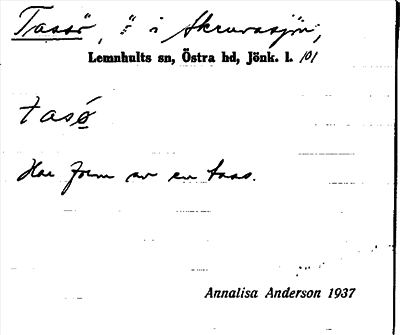 Tassö, ö i Skruvsjön,
Lemnhults sn, Östra hd, Jönk. l. 101
tasö
Har form av en tass.
Annalisa Anderson 1937